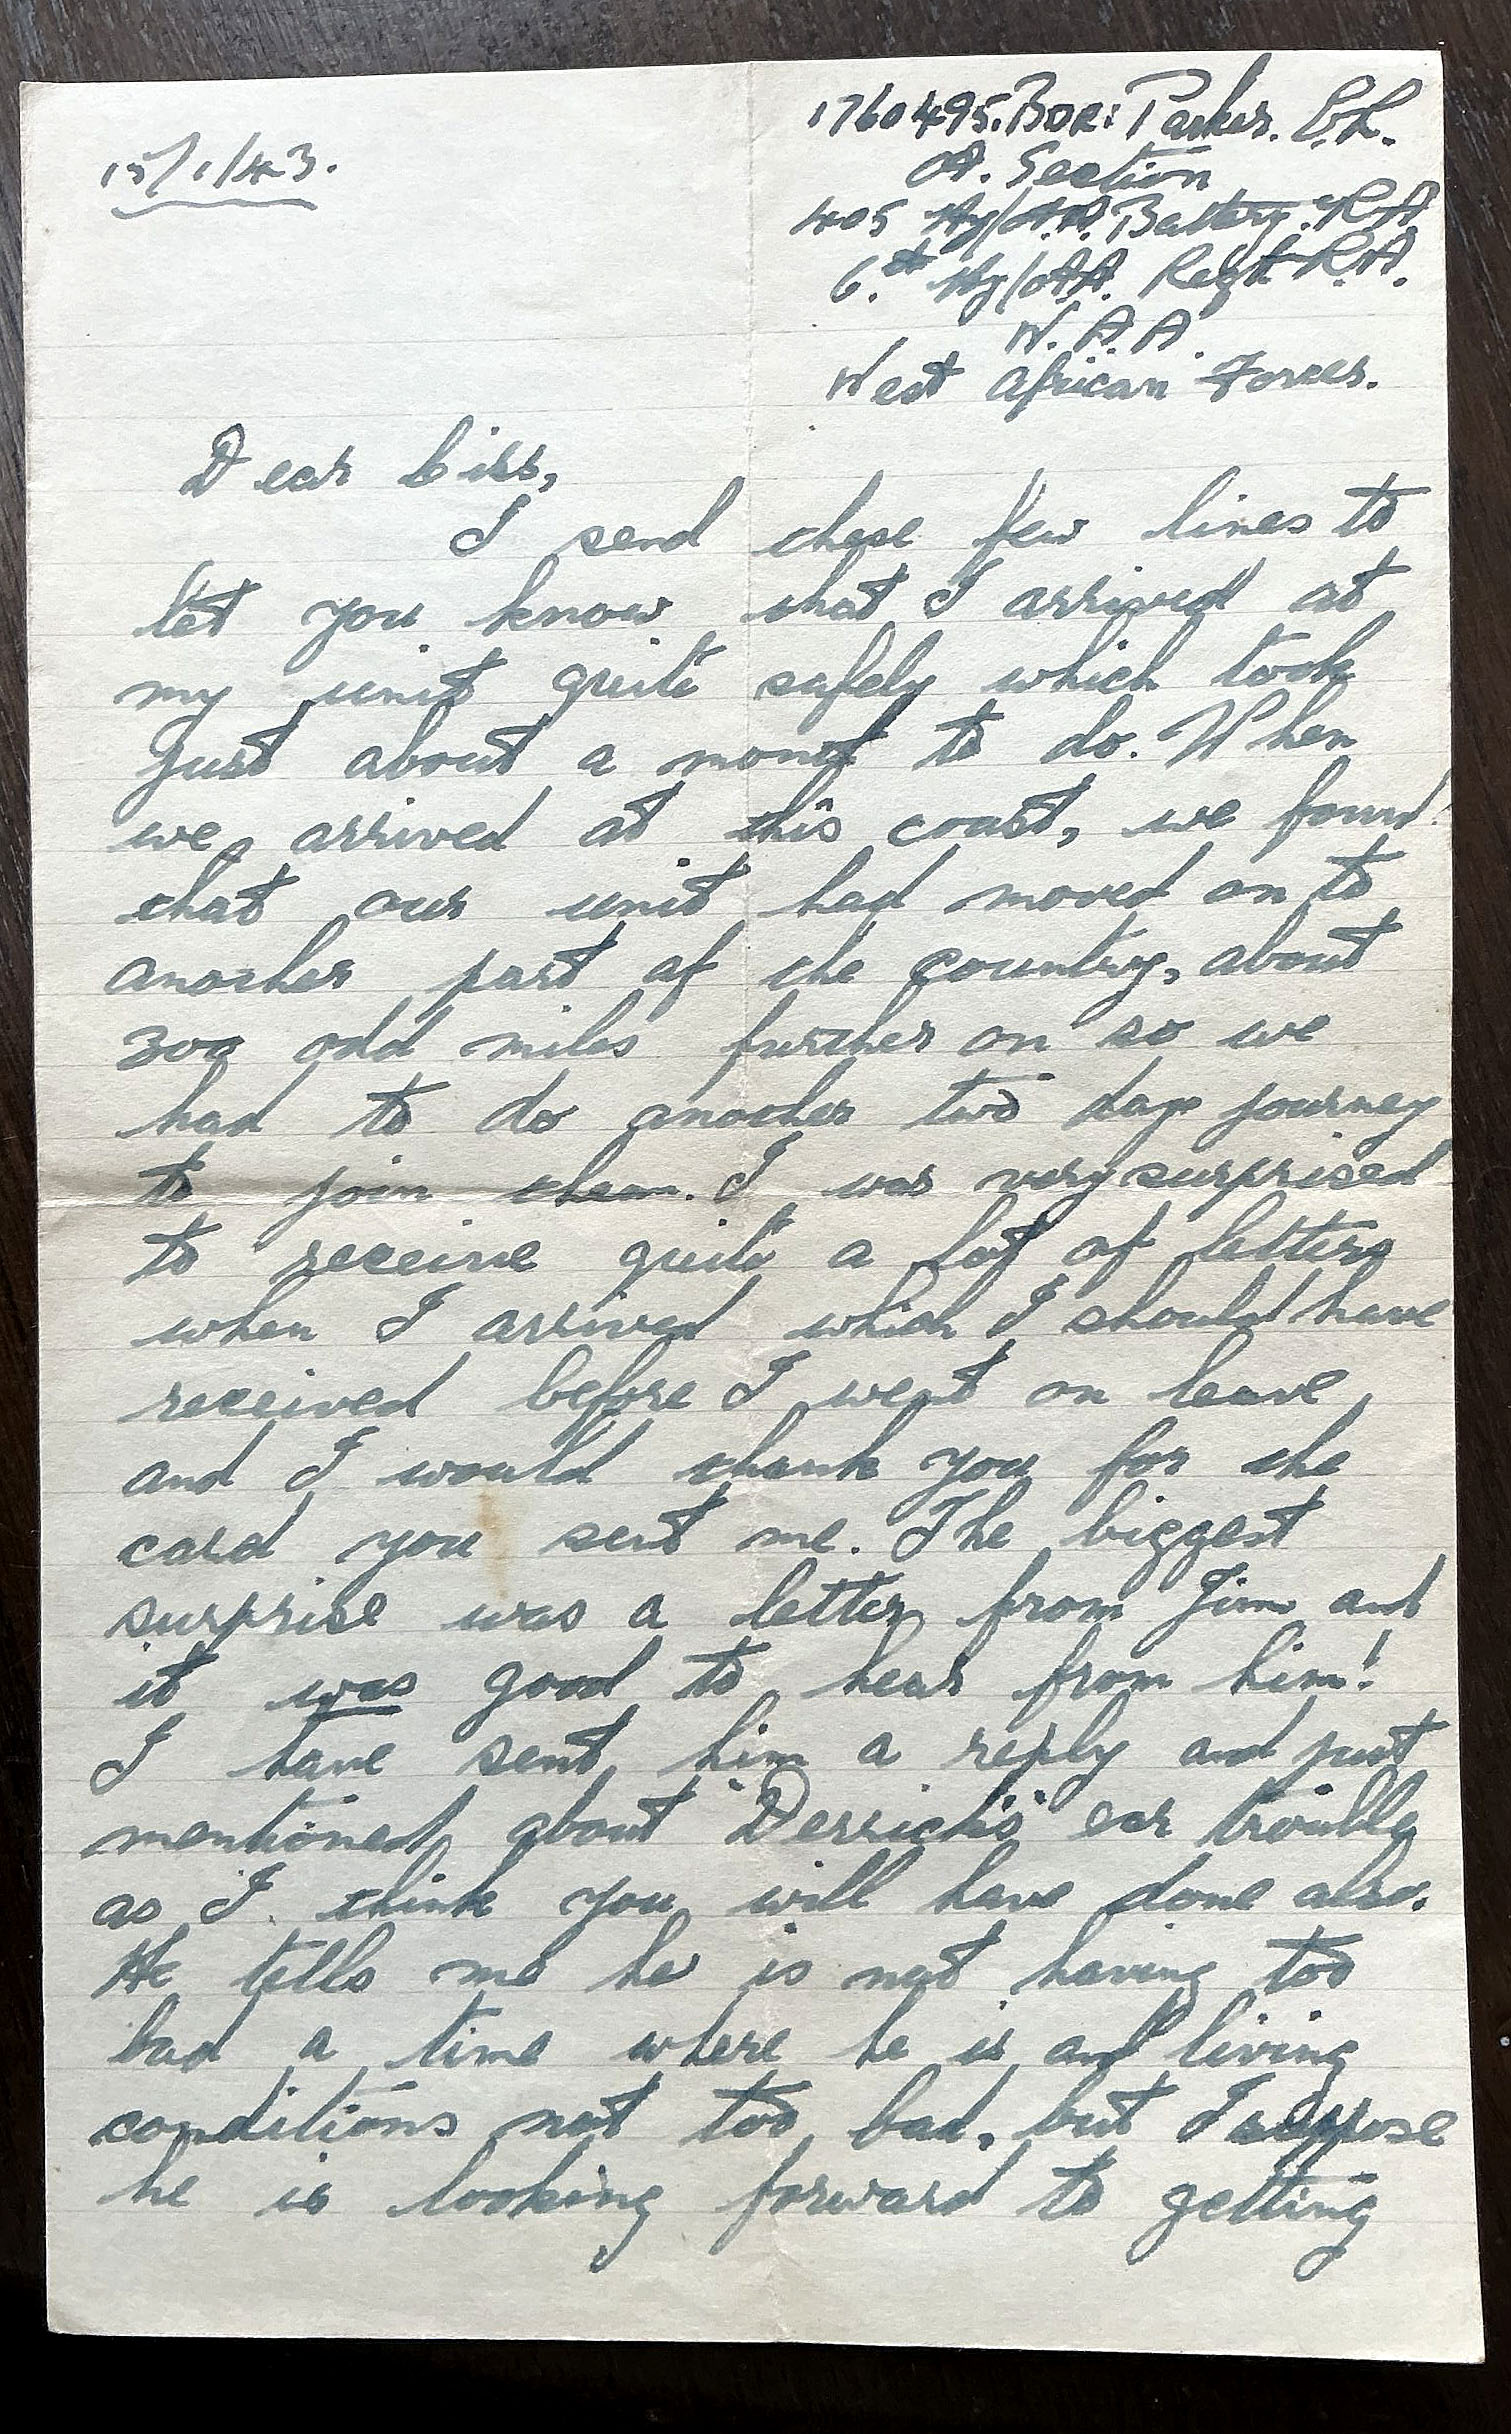 15/1/43.
1760495. BDR: Parker. C.L.
A. Section
405 Hy/A.A. Battery. RA
6.th Hy/AA. Regt R.A.
W. A. A.
West African Forces.
Dear Ciss,
I send these few lines to
let you know that I arrived at
my unit quite safely which took
just about a month to do. When
we arrived at this coast, we found
that our unit had moved on to
another part of the country, about
300 odd miles further on so we
had to do another two days journey
to join them. I was very surprised
to receive quite a lot of letters
when I arrived which I should have
received before I went on leave,
and I would thank you for the
card you sent me. The biggest
surprise was a letter from Jim and
it was good to hear from him!
I have sent him a reply and just
mentioned about "Derrick's" ear trouble
as I think you will have done also.
He tells me he is not having too
bad a time where he is and living
conditions not too bad, but I suppose
he is looking forward to getting